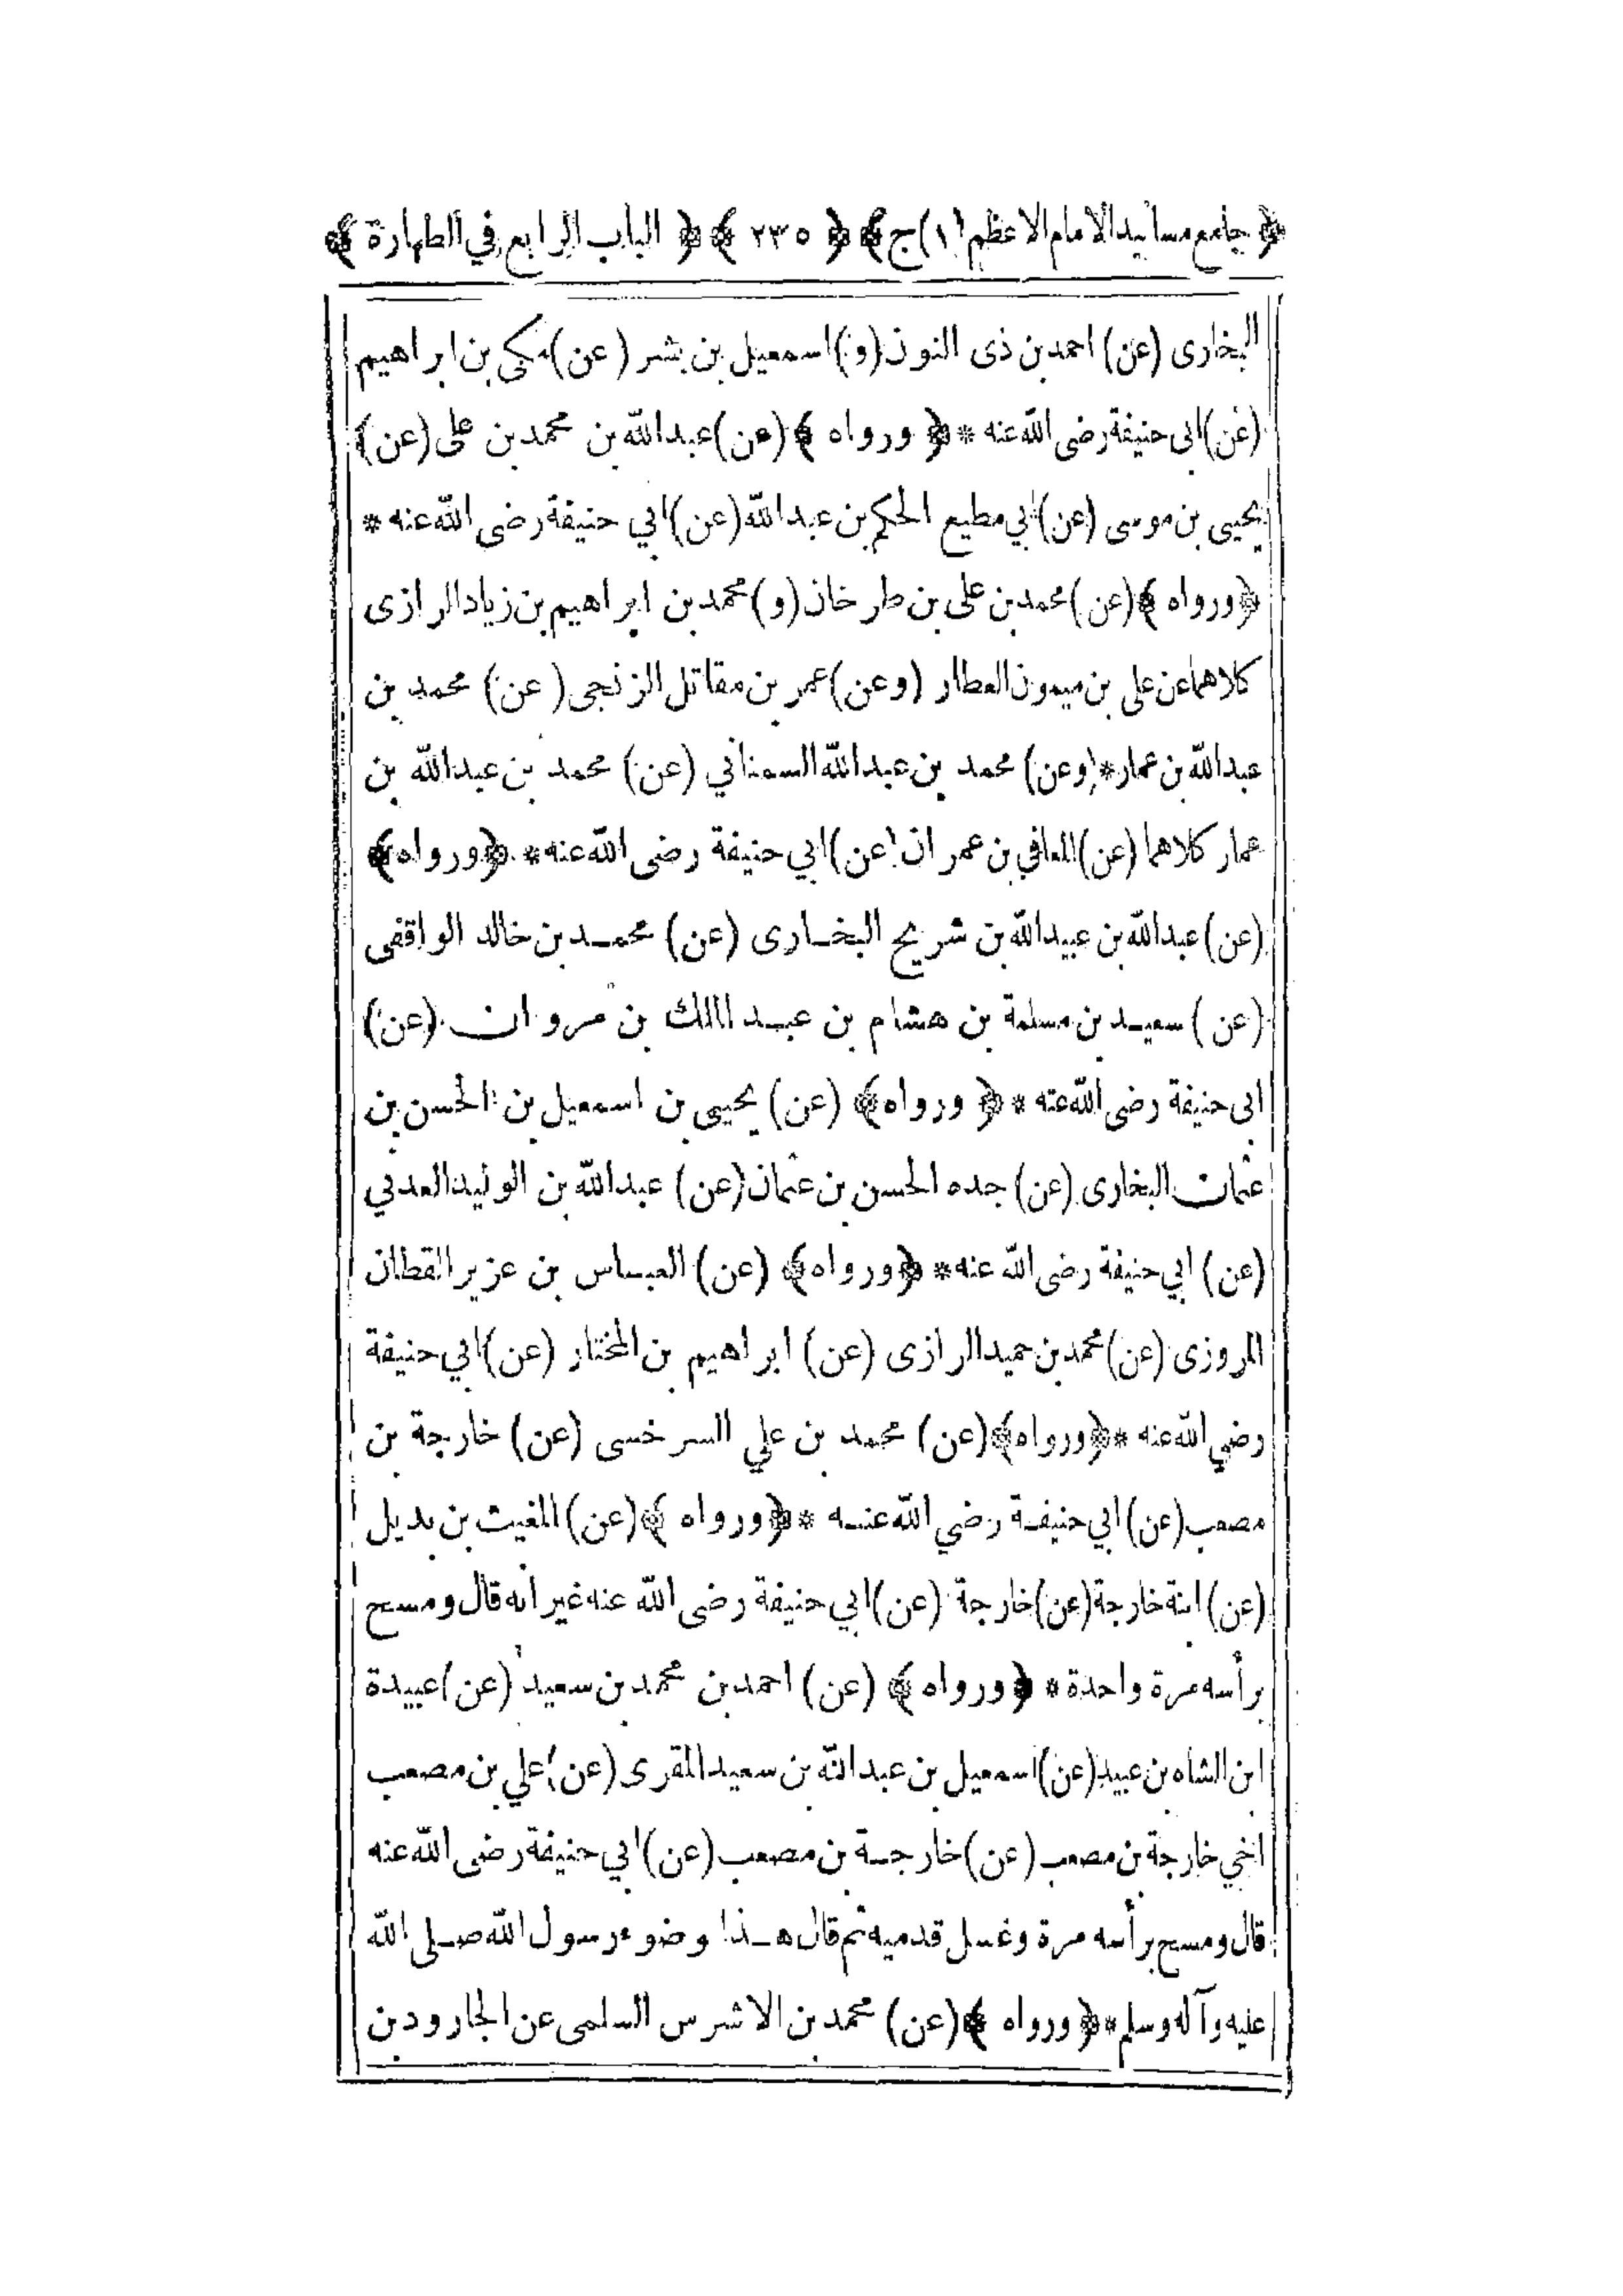 ﴿ جامع مسانيد الامام الاعظم (١) ج ﴾ ﴿ ٢٣٥ ﴾ ﴿ الباب الرابع في الطهارة ﴾
البخارى (عن) احمد بن ذى النون (و) اسمعيل بن بشر (عن) مكى بن ابراهيم
(عن) ابى حنيفة رضى الله عنه * ﴿ ورواه ﴾ (عن) عبد الله بن محمد بن على (عن)
يحيى بن موسى (عن) ابي مطيع الحكم بن عبد الله (عن) ابي حنيفة رضى الله عنه *
﴿ ورواه ﴾ (عن) محمد بن على بن طرخان (و) محمد بن ابراهيم بن زياد الرازى
كلاهما عن على بن ميمون العطار (وعن) عمر بن مقاتل الزنجى (عن) محمد بن
عبد الله بن عمار * (وعن) محمد بن عبد الله السمناني (عن) محمد بن عبد الله بن
عمار كلاهما (عن) المعافي بن عمران (عن) ابي حنيفة رضى الله عنه * ﴿ ورواه ﴾
(عن) عبد الله بن عبيد الله بن شريح البخارى (عن) محمد بن خالد الواقفى
(عن) سعيد بن مسلمة بن هشام بن عبد المالك بن مروان (عن)
ابى حنيفة رضى الله عنه * ﴿ ورواه ﴾ (عن) يحيى بن اسمعيل بن الحسن بن
عثمان البخارى (عن) جده الحسن بن عثمان (عن) عبد الله بن الوليد العدني
(عن) ابي حنيفة رضى الله عنه * ﴿ ورواه ﴾ (عن) العباس بن عزير القطان
المروزى (عن) محمد بن حميد الرازى (عن) ابراهيم بن المختار (عن) ابي حنيفة
رضي الله عنه * ﴿ ورواه ﴾ (عن) محمد بن علي السرخسى (عن) خارجة بن
مصعب (عن) ابي حنيفة رضي الله عنه * ﴿ ورواه ﴾ (عن) المغيث بن بديل
(عن) ابنة خارجة (عن) خارجة (عن) ابي حنيفة رضى الله عنه غير انه قال ومسح
برأسه مرة واحدة * ﴿ ورواه ﴾ (عن) احمد بن محمد بن سعيد (عن) عبيدة
ابن الشاه بن عبيد (عن) اسمعيل بن عبد الله بن سعيد المقرى (عن) علي بن مصعب
اخي خارجة بن مصعب (عن) خارجة بن مصعب (عن) ابي حنيفة رضى الله عنه
قال ومسح برأسه مرة وغسل قدميه ثم قال هذا وضوء رسول الله صلى الله
عليه وآله وسلم * ﴿ ورواه ﴾ (عن) محمد بن الاشرس السلمى عن الجارود بن